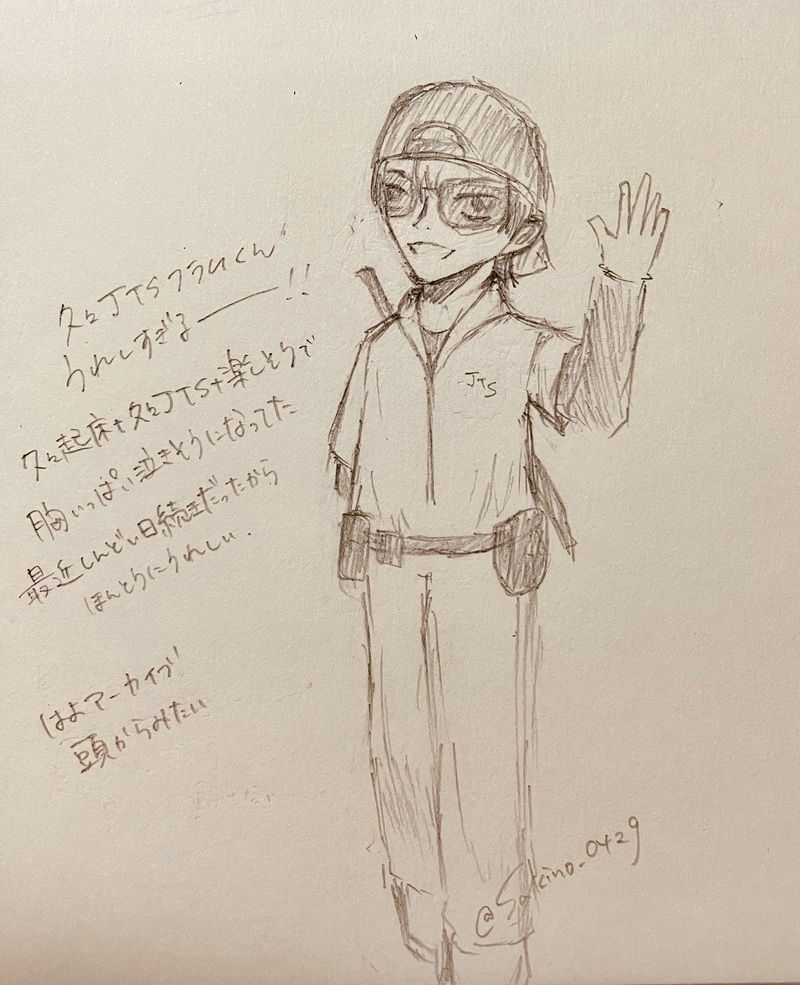 久々JTSフライくん
うれしすぎるー!!
久々起床+久々JTS+楽しそうで
胸いっぱい泣きそうになってた
最近しんどい日続きだったから
ほんとうにうれしい.
はよアーカイブ!
頭からみたい
JTS
@Sakino_0429